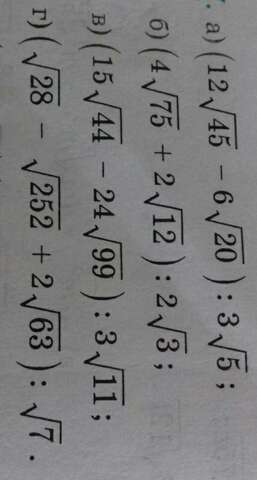 а) (12√45 − 6√20) : 3√5;
б) (4√75 + 2√12) : 2√3;
в) (15√44 − 24√99) : 3√11;
г) (√28 − √252 + 2√63) : √7.